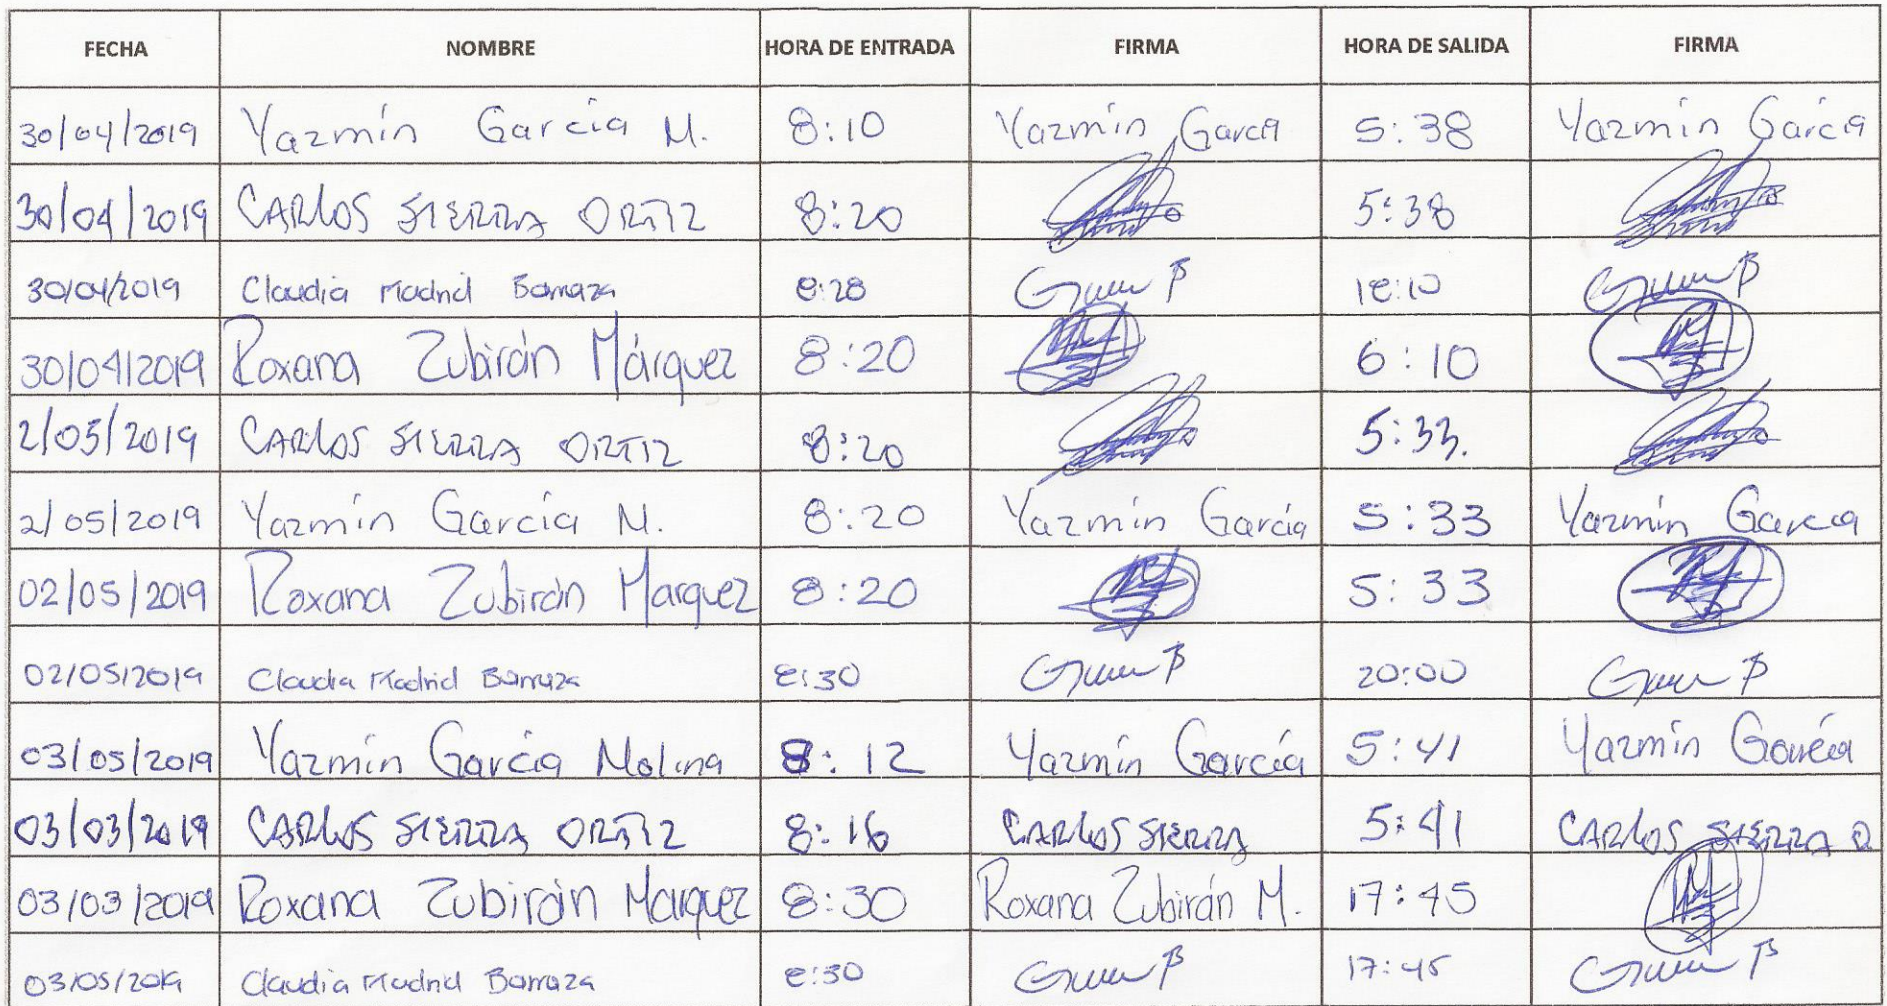 FECHA NOMBRE HORA DE ENTRADA FIRMA HORA DE SALIDA FIRMA
30/04/2019 Yazmín García M. 8:10 Yazmín García 5:38 Yazmín García
30/04/2019 CARLOS SIERRA ORTIZ 8:20 5:38
30/04/2019 Claudia Madrid Barraza 8:28 18:10
30/04/2019 Roxana Zubirán Márquez 8:20 6:10
2/05/2019 CARLOS SIERRA ORTIZ 8:20 5:33.
2/05/2019 Yazmín García M. 8:20 Yazmín García 5:33 Yazmín García
02/05/2019 Roxana Zubirán Marquez 8:20 5:33
02/05/2019 Claudia Madrid Barraza 8:30 20:00
03/05/2019 Yazmín García Molina 8:12 Yazmín García 5:41 Yazmín García
03/03/2019 CARLOS SIERRA ORTIZ 8:16 CARLOS SIERRA 5:41 CARLOS SIERRA O
03/03/2019 Roxana Zubirán Marquez 8:30 Roxana Zubirán M. 17:45
03/05/2019 Claudia Madrid Barraza 8:30 17:45